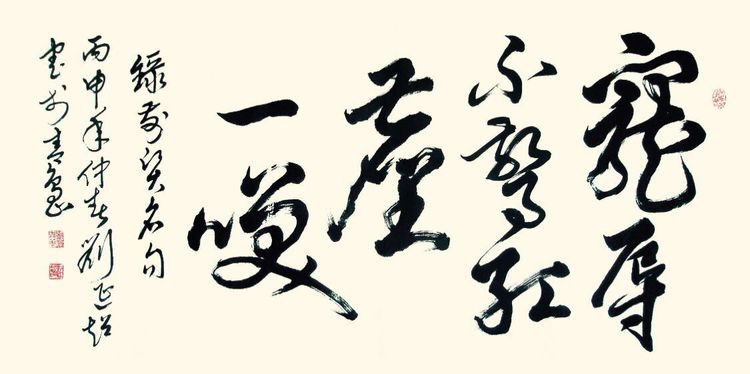 寵辱
不驚紅
塵
一咲
錄前賢名句
丙申年仲春劉延超
書於青島